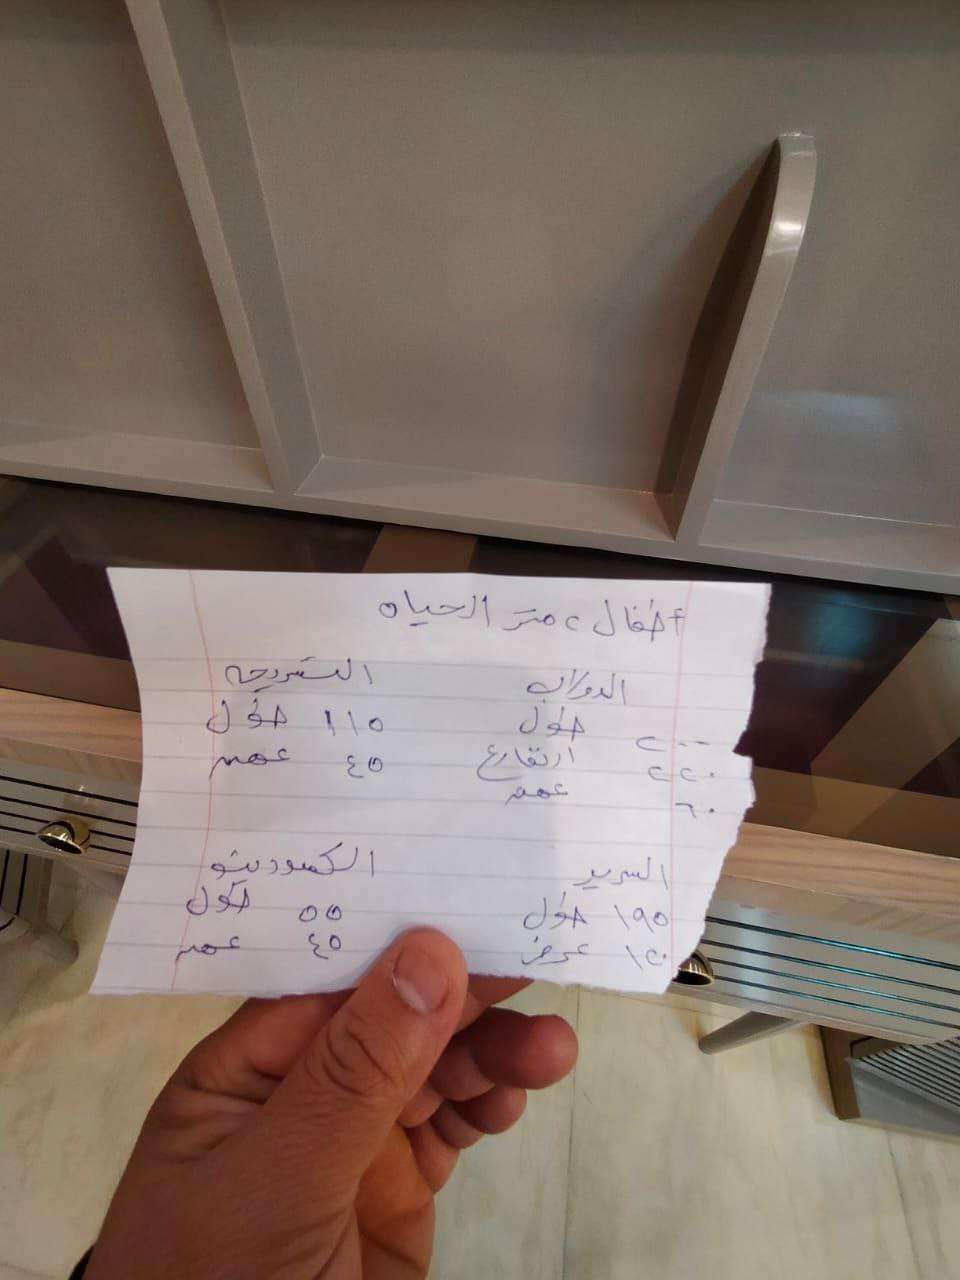 أطفال ٢ متر الحياه
الدولاب
٢٠٠ طول
٢٢٠ ارتفاع
٦٠ عمق
التسريحه
١١٥ طول
٤٥ عمق
السرير
١٩٥ طول
١٢٠ عرض
الكمودينو
٥٥ طول
٤٥ عمق